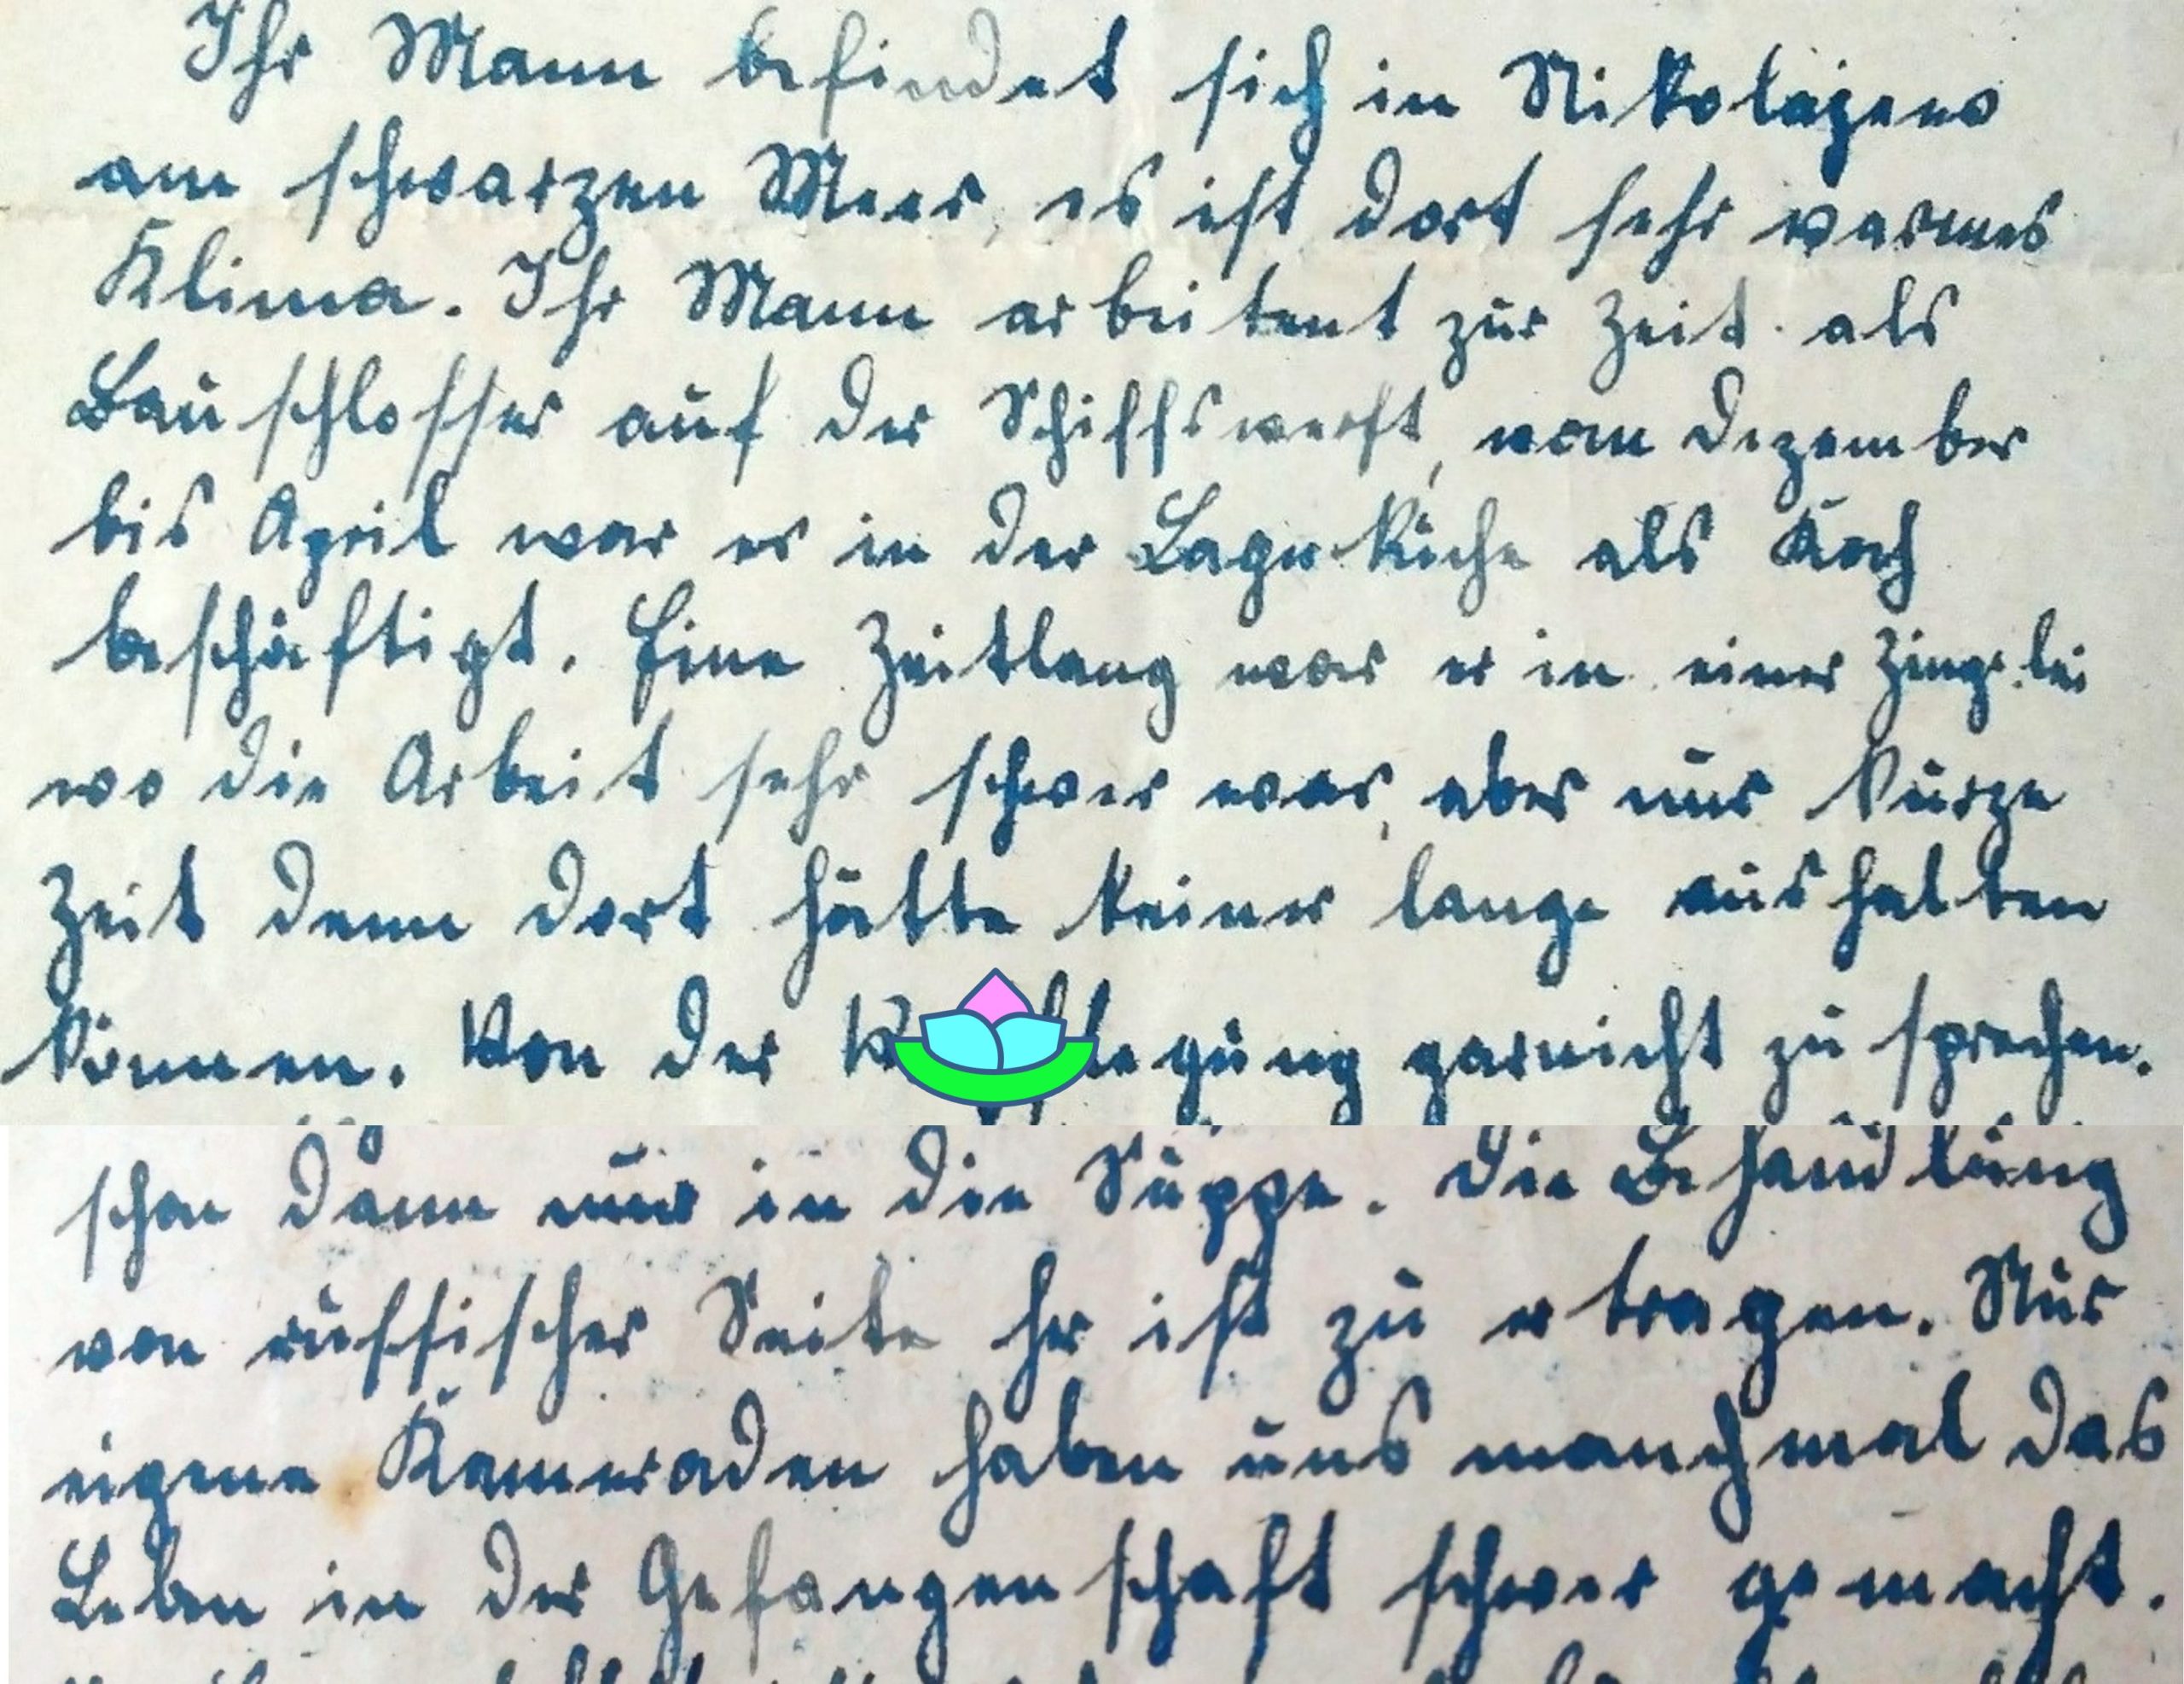 Ihr Mann befindet sich in Nikolajewo
am schwarzen Meer, es ist dort sehr warmes
Klima. Ihr Mann arbeitent zur Zeit als
Bauschlosser auf der Schiffswerft, vom Dezember
bis April war er in der Lagerküche als Koch
beschäftigt. Eine Zeitlang war er in einer
wo die Arbeit sehr schwer war, aber nur kurze
Zeit denn dort hätte keiner lange aushalten
können. Von der garnicht zu sprechen.
schon dann nur in die Suppe. Die Behandlung
von russischer Seite her ist zu ertragen. Nur
eigene Kameraden haben uns manchmal das
Leben in der Gefangenschaft schwer gemacht.